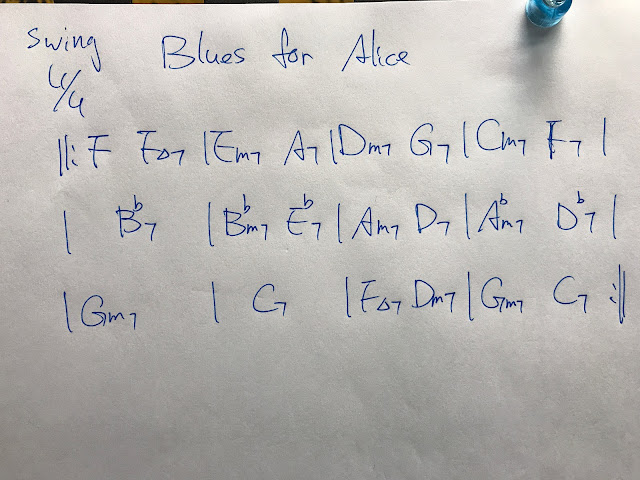 Swing Blues for Alice
4/4
||: F F△7 | Em7 A7 | Dm7 G7 | Cm7 F7 |
| B♭7 | B♭m7 E♭7 | Am7 D7 | A♭m7 D♭7 |
| Gm7 | C7 | F△7 Dm7 | Gm7 C7 :||